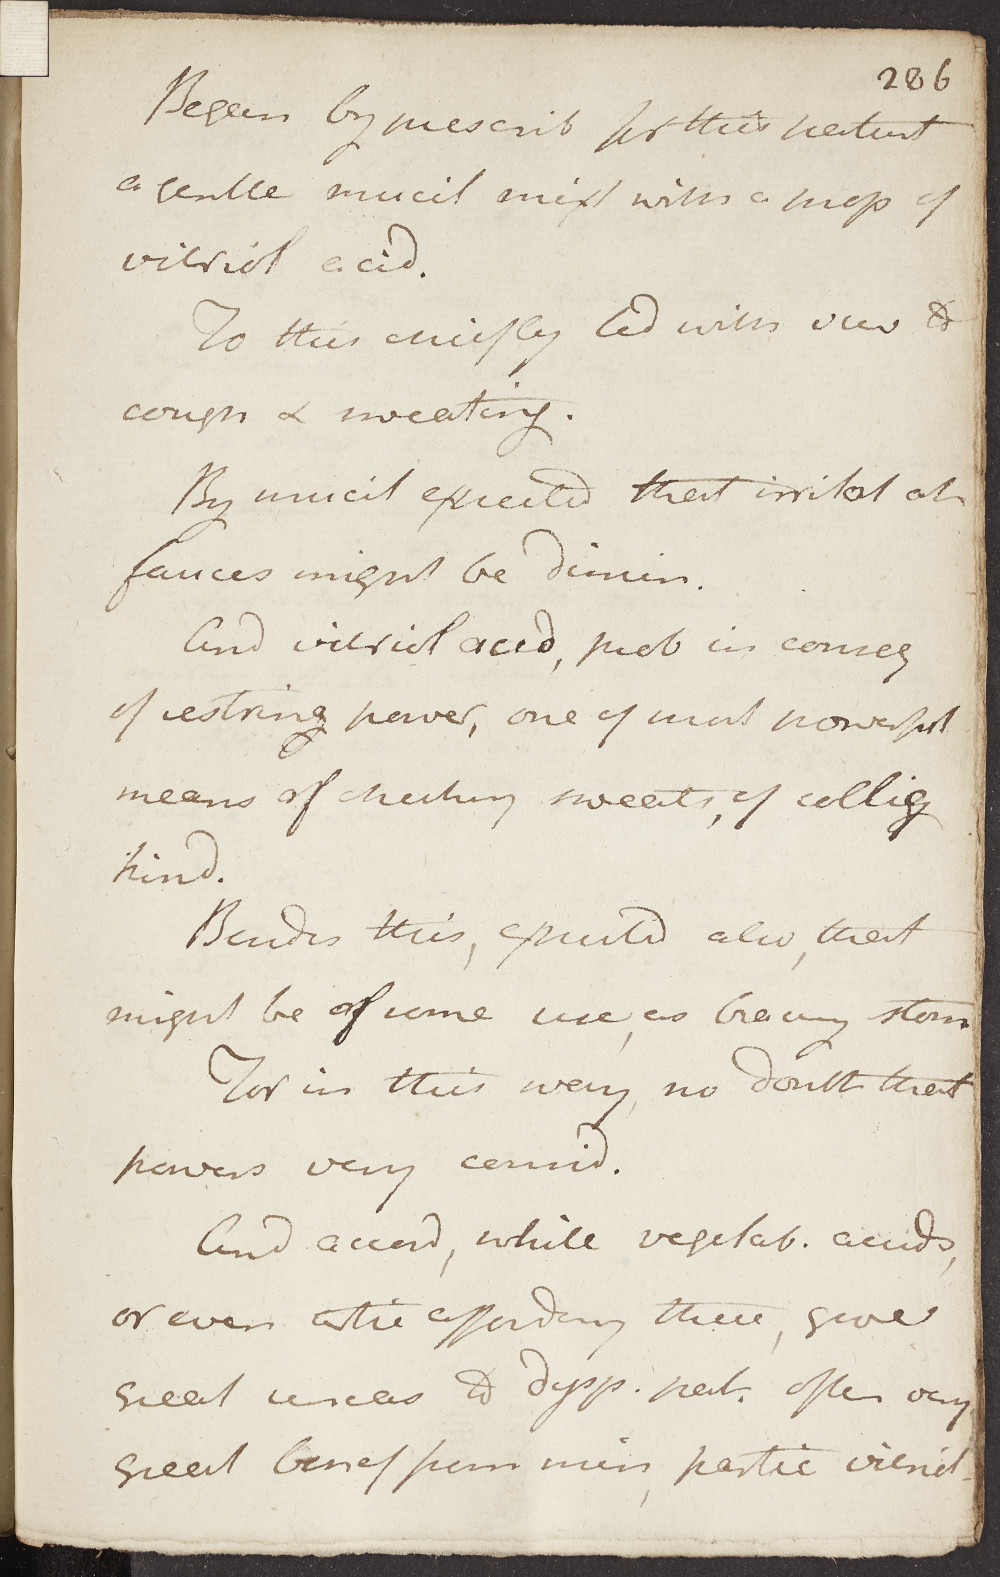 286
Began by prescrib for this patient
a gentle mucil mixt with a prop of
vitriol acid.
To this chiefly led with view to
cough & sweating.
By mucil expected that irritat at
fauces might be dimin.
And vitriol acid, prob in conseq
of restring power, one of most powerful
means of checking sweats, of collig
kind.
Besides this, expected also, that
might be of some use, as bracing stom
For in this way, no doubt that
powers very consid.
And accord, while vegetab. acids,
or even artic affording these, give
great uneas to dysp. pat. often very
great benef from min, partic vitriol